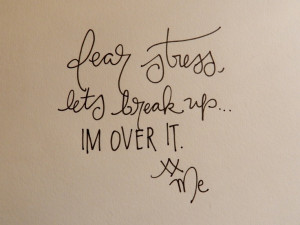 dear stress,
lets break up...
IM OVER IT.
xx
me